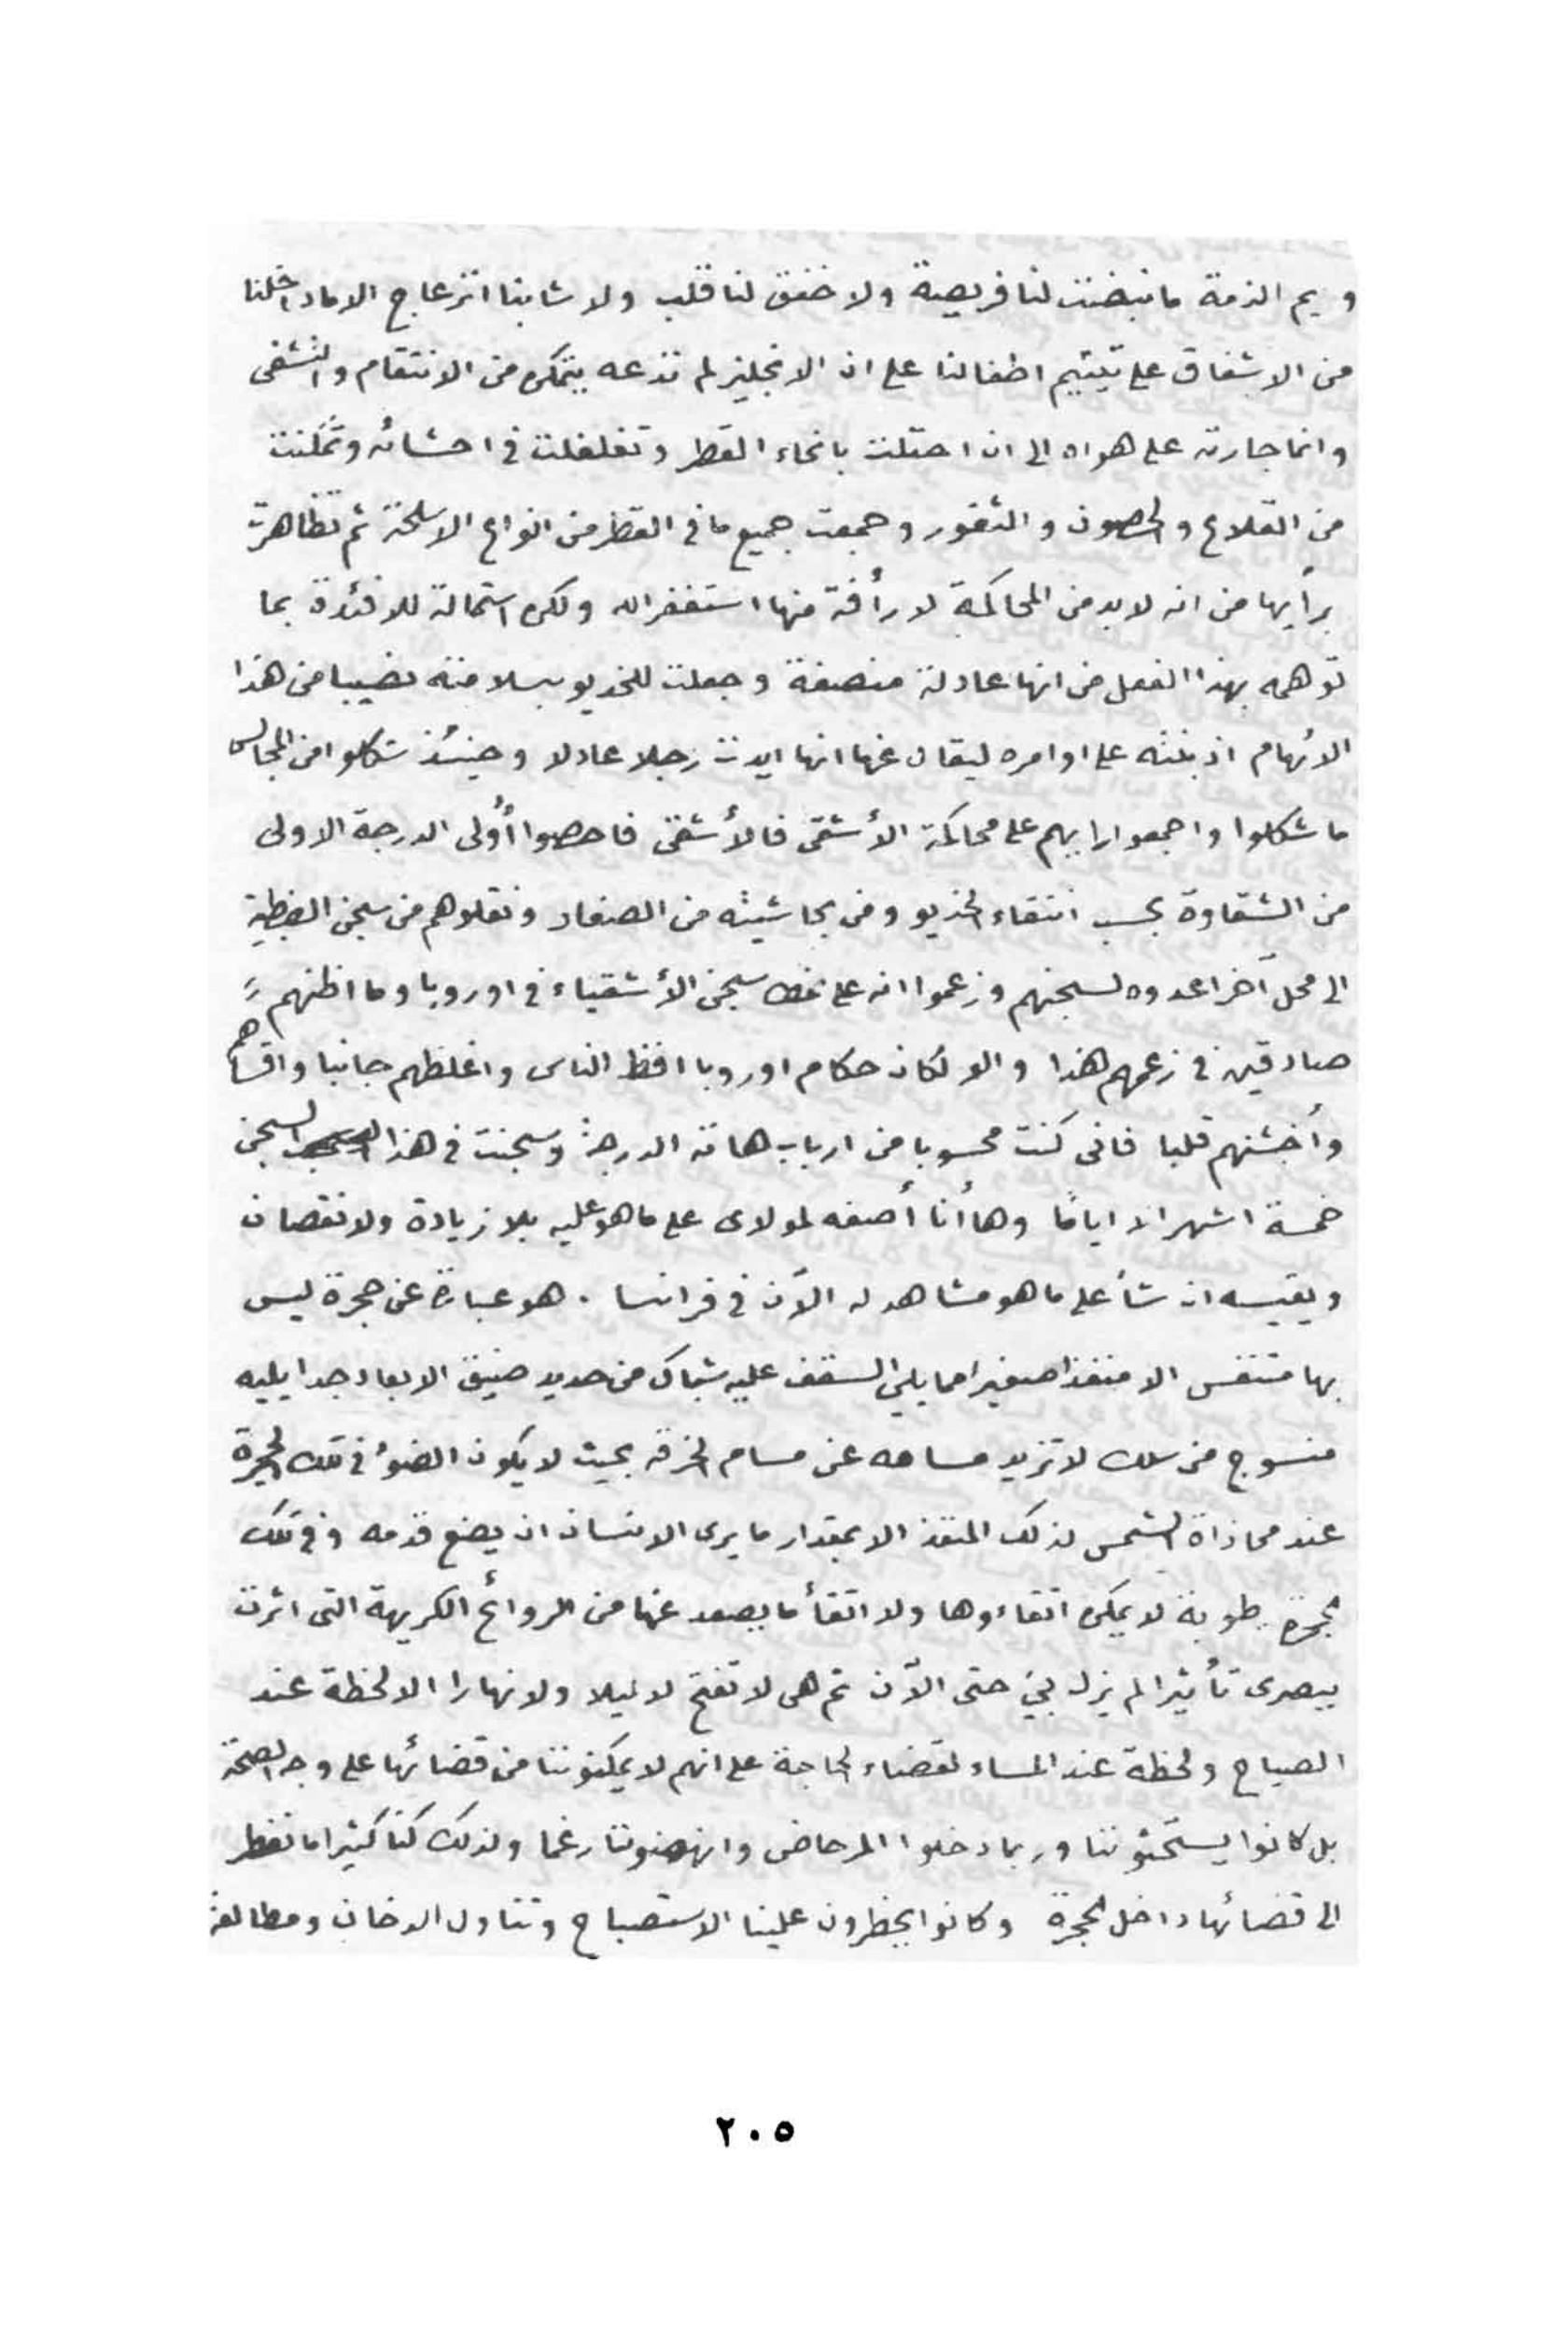 ويم الذمة ما نبضت لنا فريصة ولا خفق لنا قلب ولا شابنا انزعاج الا ما داخلنا
من الاشفاق على تيتيم اطفالنا على ان الانجليز لم تدعه يتمكن من الانتقام والتشفى
وانما جارته على هواه الى ان احتلت بانحاء القطر وتغلغلت فى احشائه وتمكنت
من القلاع والحصون والثغور وجمعت جميع ما فى القطر من انواع الاسلحة ثم تظاهرت
برأيها من انه لا بد من المحاكمة لا رأفة منها استغفر الله ولكن استمالة للافئدة بما
توهمه بهذا الفعل من انها عادلة منصفة وجعلت للخديو بسلامته نصيبا من هذا
الايهام اذ بنته على اوامره ليقال عنها انها ايدت رجلا عادلا وحينئذ شكلوا من المجالس
ما شكلوا واجمعوا رايهم على محاكمة الأشقى فالأشقى فاحصوا أولى الدرجة الاولى
من الشقاوة بحسب انتقاء الخديو ومن بحاشيته من الصغار ونقلوهم من سجن الضبطية
الى محل آخر اعدوه لسجنهم وزعموا انه على نمط سجن الأشقياء فى اوروبا وما اظنهم
صادقين فى زعمهم هذا والا لكان حكام اوروبا افظ الناس واغلظهم جانبا واقساهم
وأخشنهم قلبا فانى كنت محسوبا من ارباب هاته الدرجة وسجنت فى هذا السجن
خمسة اشهر الا اياما وها أنا أصفه لمولاى على ما هو عليه بلا زيادة ولا نقصان
ويقيسه ان شأ على ما هو مشاهد له الآن فى فرانسا . هو عبارة عن حجرة ليس
بها متنفس الا منفذا صغيرا مما يلي السقف عليه شباك من حديد ضيق الابعاد جدا يليه
منسوج من سلك لا تزيد مسامه عن مسام الخرقه بحيث لا يكون الضوء فى تلك الحجرة
عند محاذاة الشمس لذلك المنفذ الا بمقدار ما يرى الانسان ان يضع قدمه وفى تلك
الحجرة رطوبة لا يمكن اتقاءوها ولا اتقأ ما يصعد عنها من الروائح الكريهة التى اثرت
ببصرى تأثيرا لم يزل بي حتى الآن ثم هى لا تفتح لا ليلا ولا نهارا الا لحظة عند
الصباح ولحظة عند المساء لقضاء الحاجة على انهم لا يمكنوننا من قضائها على وجه الصحة
بل كانوا يستحثوننا وربما دخلوا المرحاض وانهضوننا رغما ولذلك كنا كثيرا ما نضطر
الى قضائها داخل الحجرة وكانوا يحظرون علينا الاستصباح وتناول الدخان ومطالعة
٢٠٥